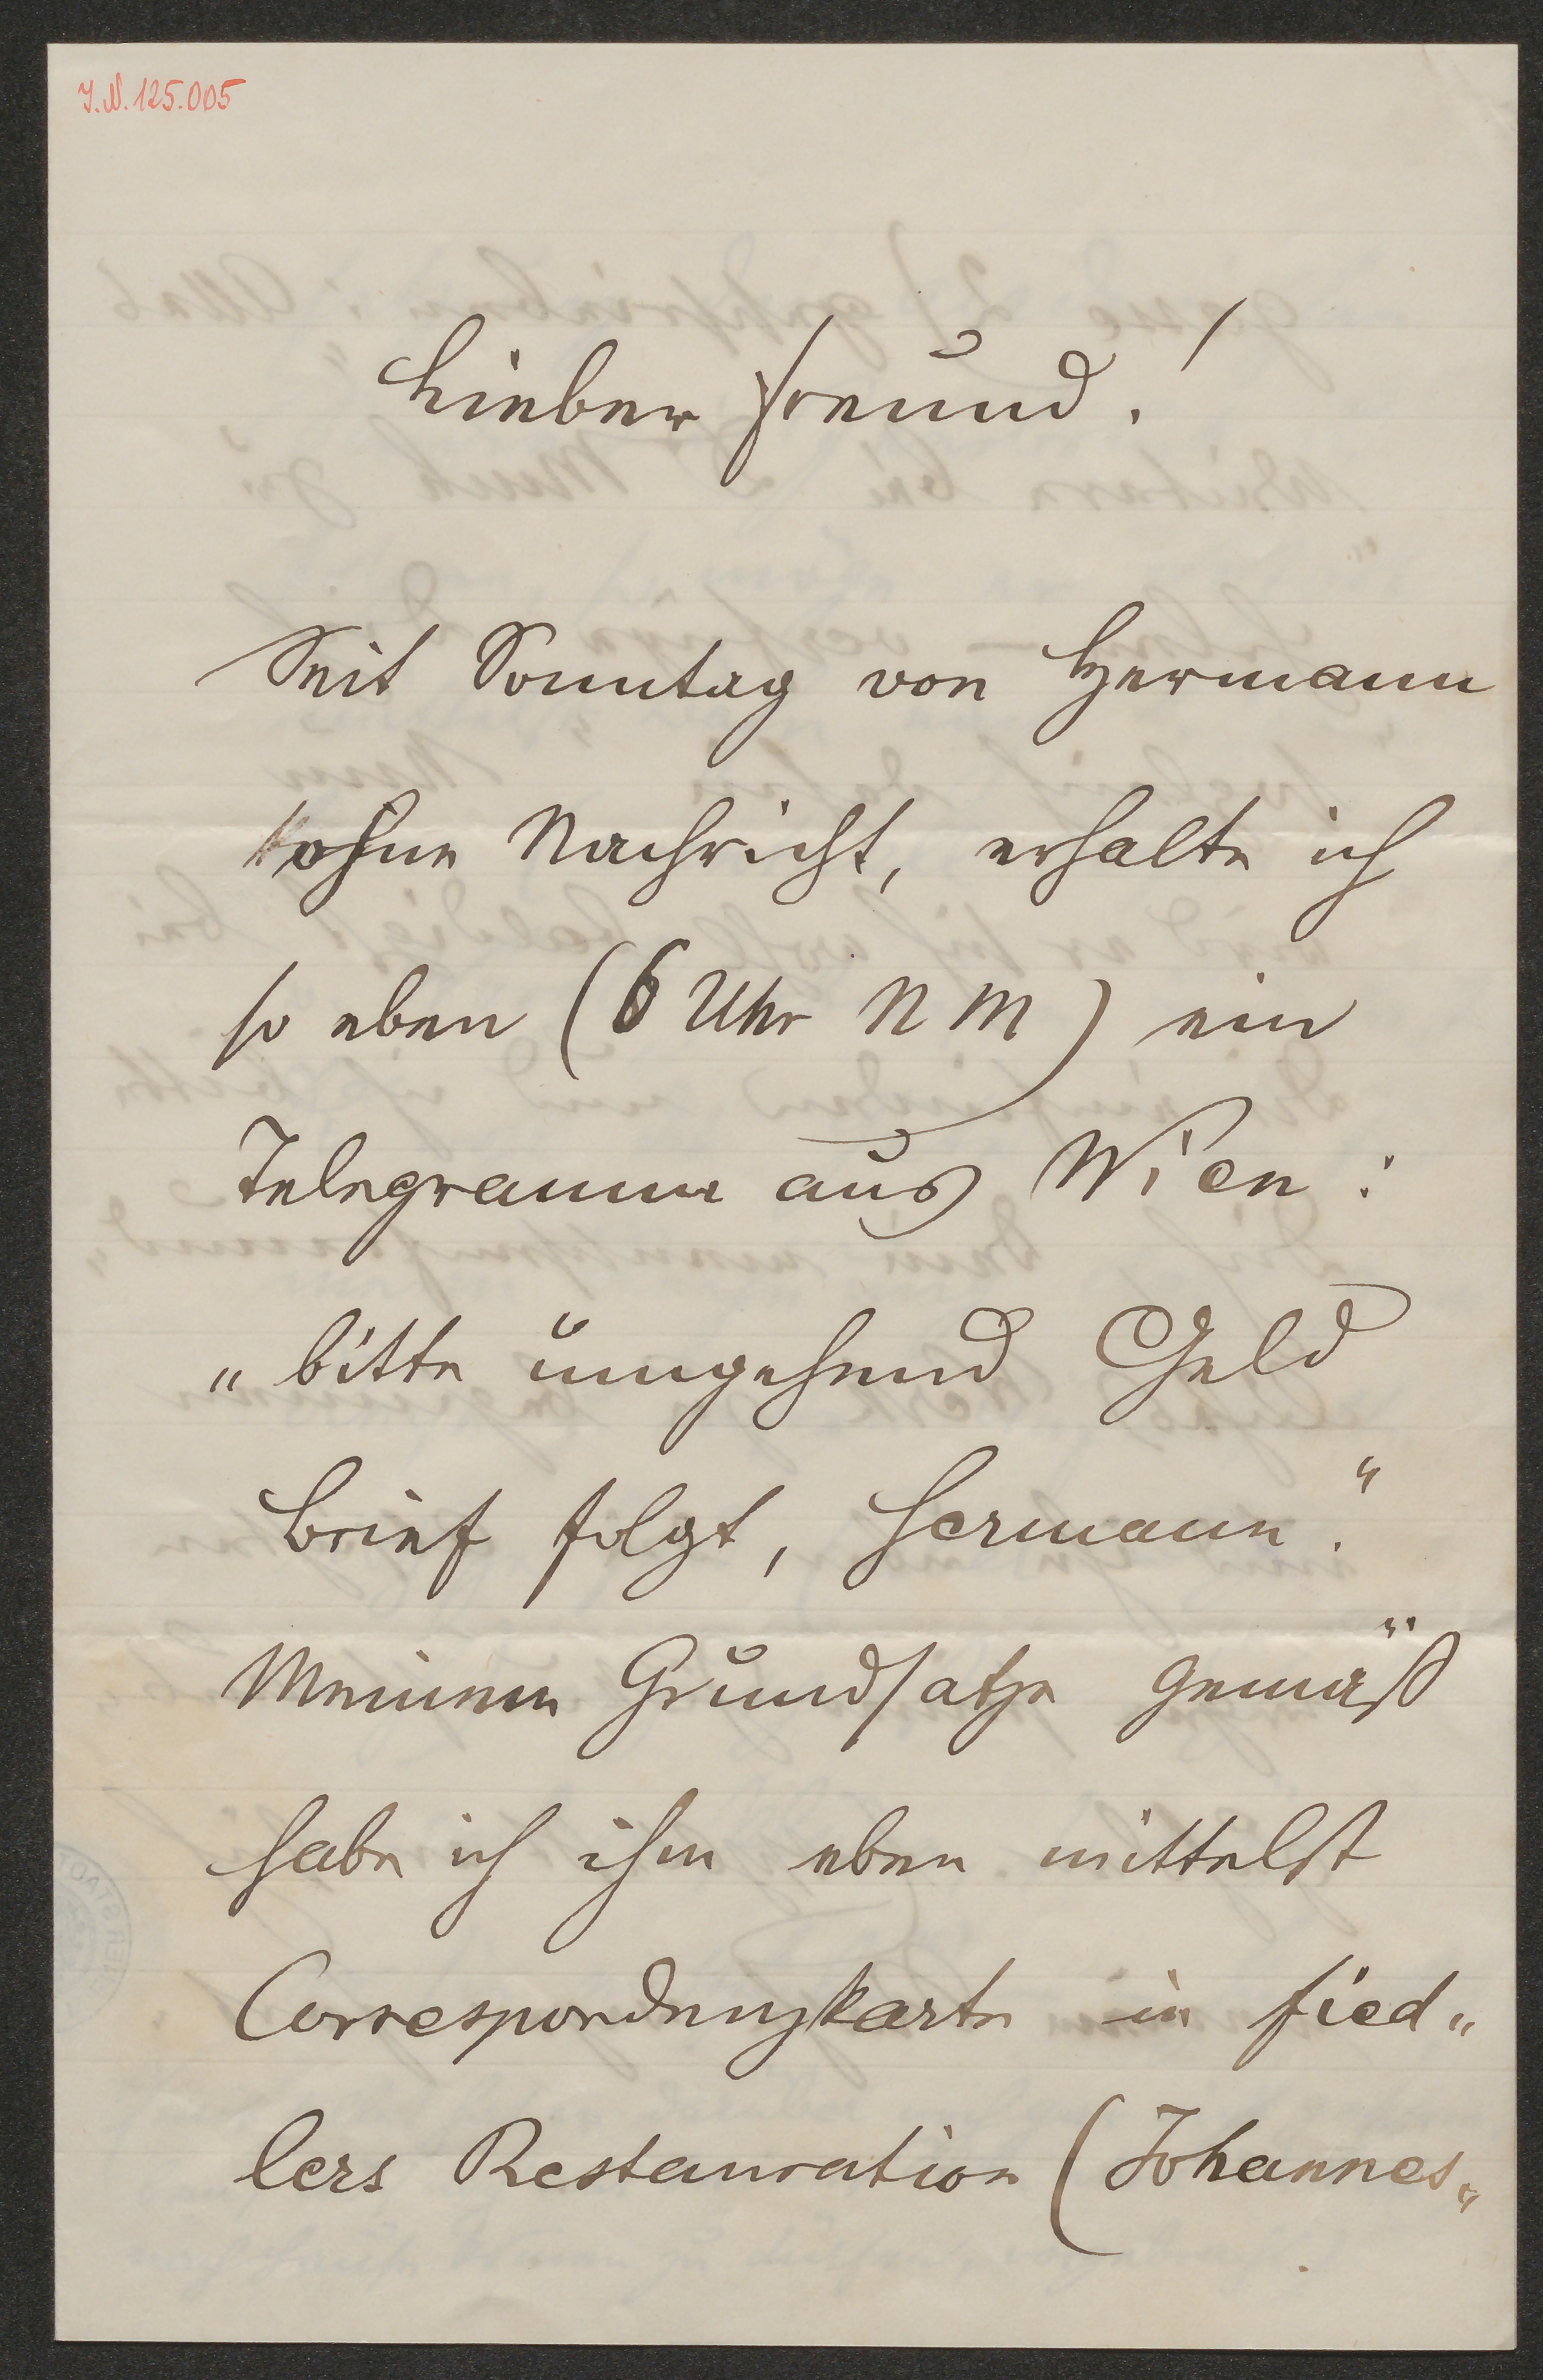 J.N. 125.005
Lieber Freund!
Seit Sonntag von Hermann
ohne Nachricht, erhalte ich
so eben (6 Uhr N M) ein
Telegramm aus Wien:
„bitte umgehend Geld
Brief folgt, Hermann.“
Meinem Grundsatze gemäß
habe ich ihm eben mittelst
Correspondenzkarte in Fied„
lers Restauration (Johannes„